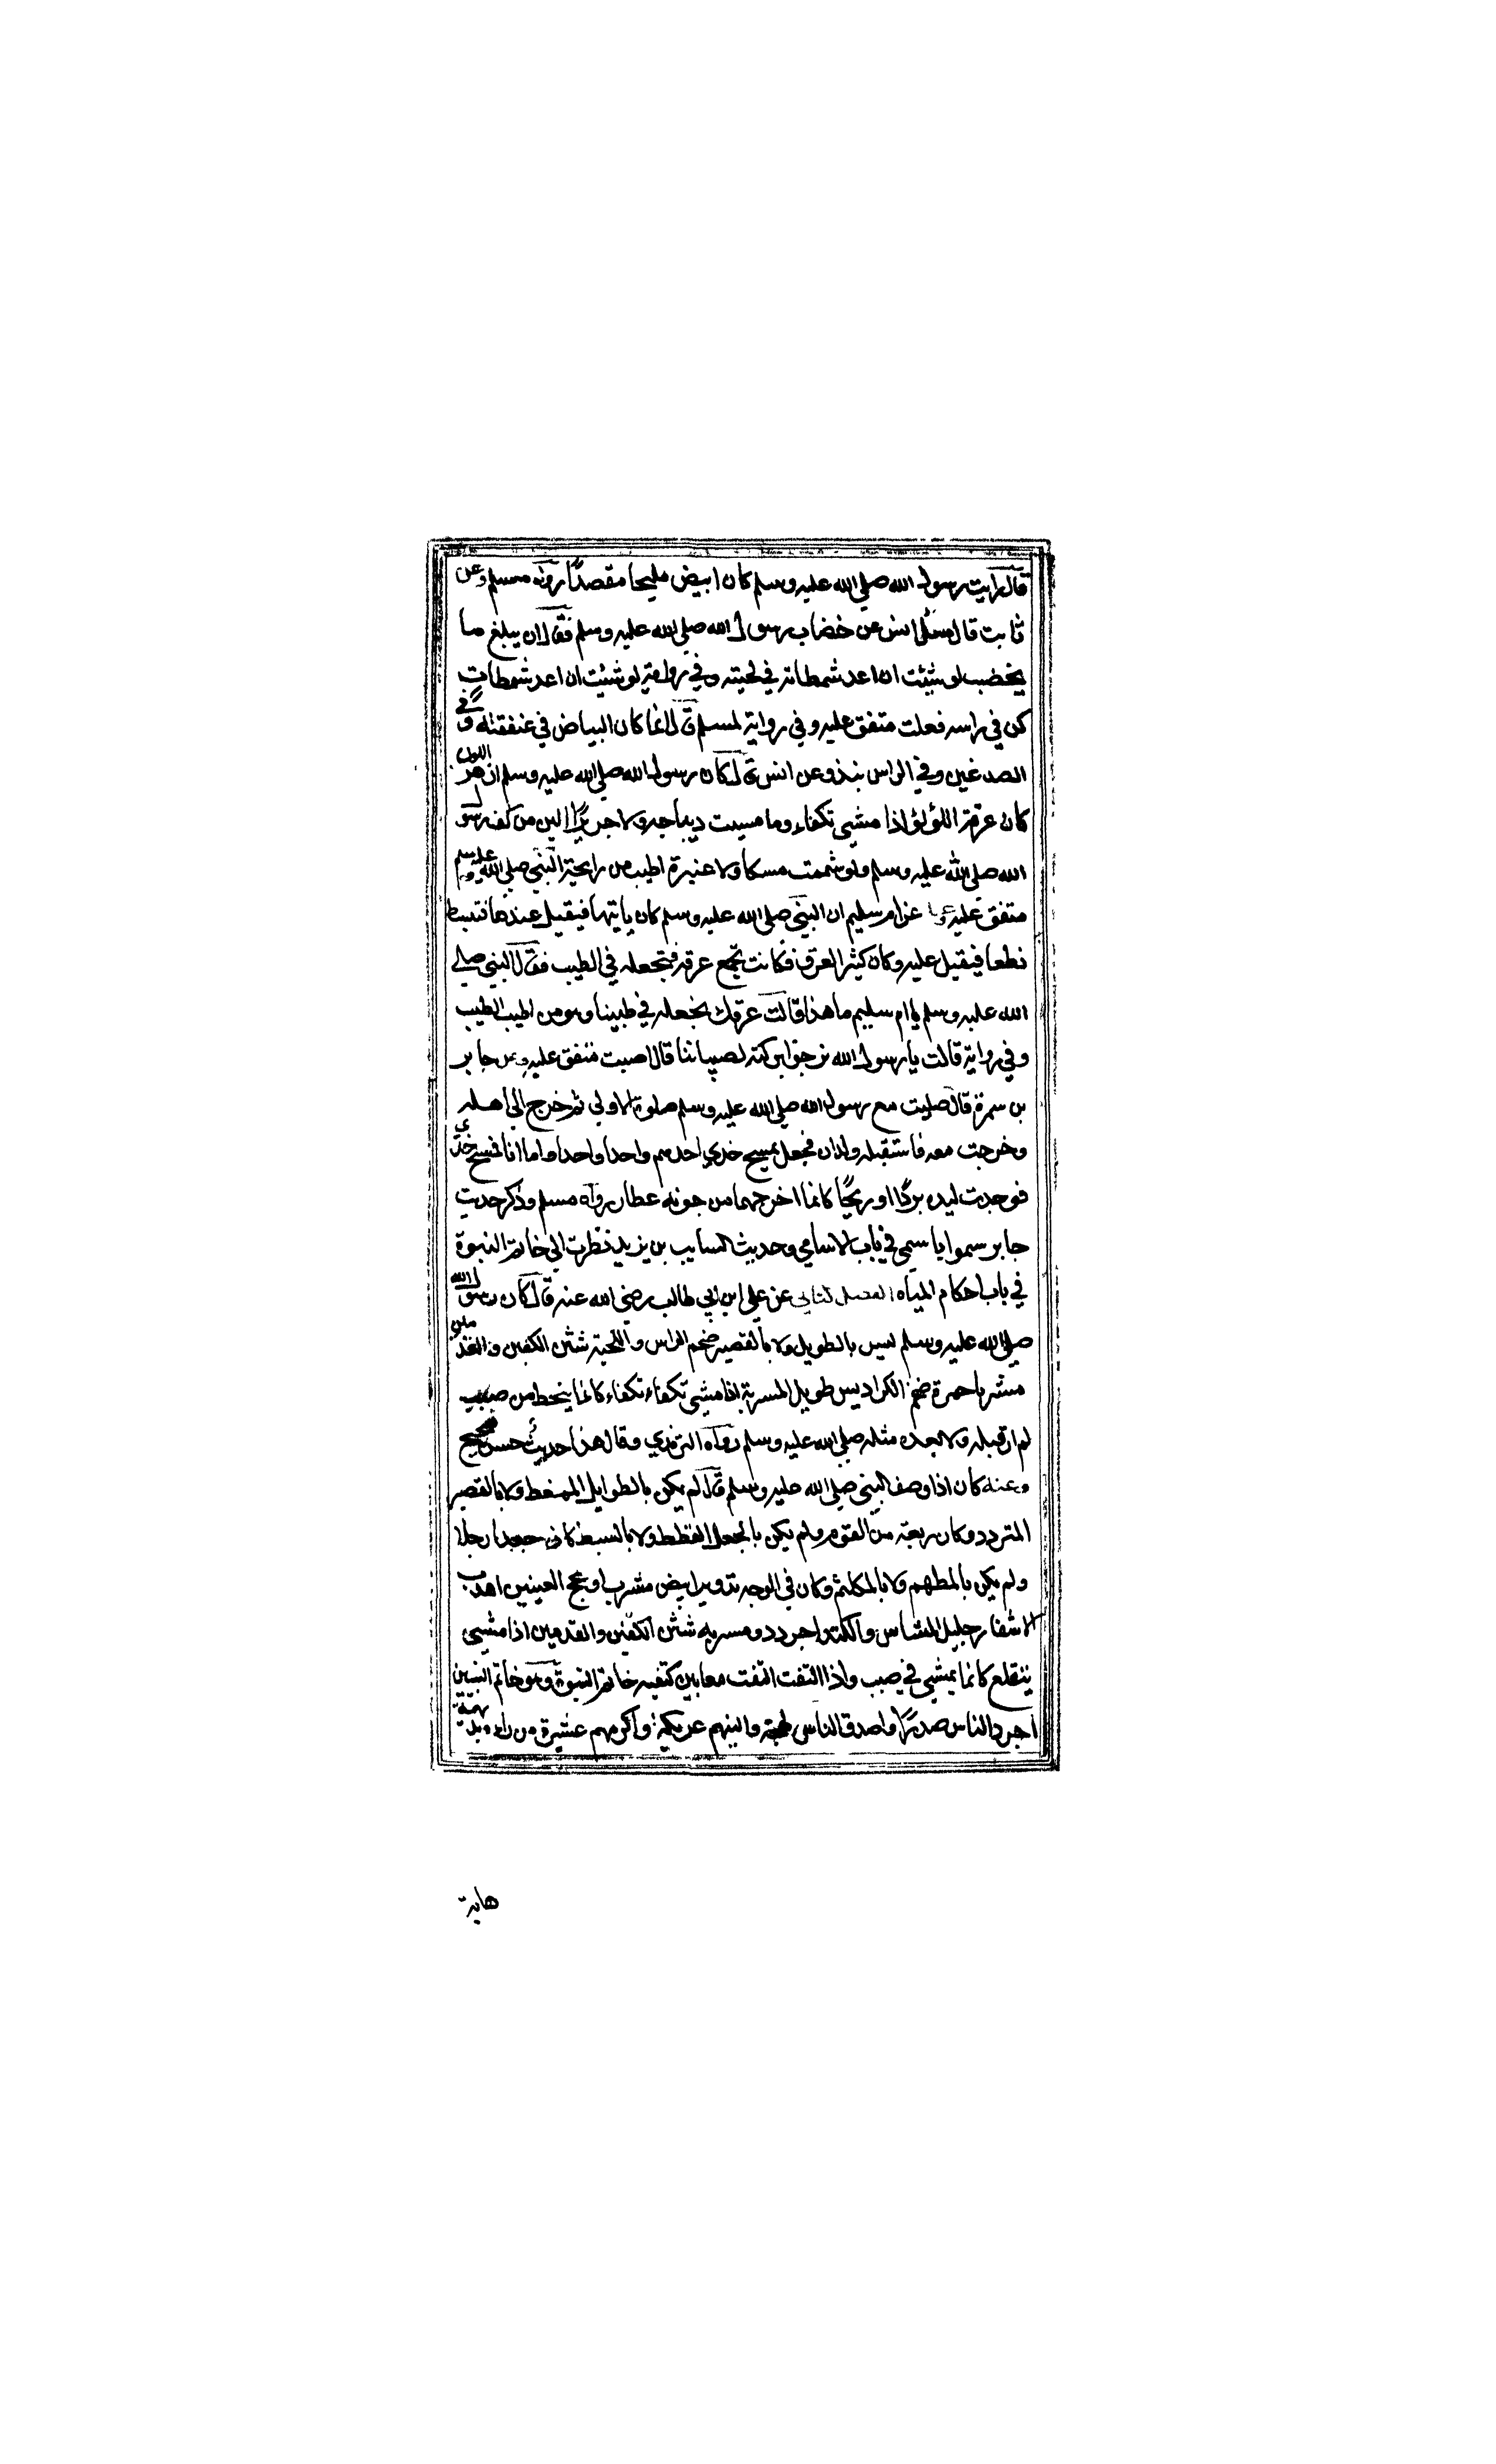 قال رايت رسول الله صلي الله عليه وسلم كان ابيض مليحا مقصدًا رواه مسلم وعن
ثابت قال سئل انس عن خضاب رسول الله صلي الله عليه وسلم فقال ان يبلغ ما
يخضب لو شئت ان اعد شمطاته في لحيته وفي رواية لو شئت ان اعد شمطات
كن في راسه فعلت متفق عليه وفي رواية لمسلم قال انما كان البياض في عنفقته وفي
الصدغين وفي الراس نبذ وعن انس قال كان رسول الله صلي الله عليه وسلم ازهر اللون
كان عرقه اللؤلؤ اذا مشي تكفاء وما مسيت ديباجه ولا حريرًا الين من كف رسول
الله صلي الله عليه وسلم ولو شممت مسكا ولا عنبرة اطيب من رايحة النبي صلي الله عليه وسلم
متفق عليه عن ام سليم ان النبي صلي الله عليه وسلم كان ياتيها فيقيل عندها فتبسط
نطعا فيقيل عليه وكان كثير العرق فكانت تجمع عرقه فتجعله في الطيب فقال النبي صلي
الله عليه وسلم يا ام سليم ما هذا قالت عرقك نجعله في طيبنا وهو من اطيب الطيب
وفي رواية قالت يا رسول الله نرجوا بركته لصبياننا قال اصبت متفق عليه وعن جابر
بن سمرة قال صليت مع رسول الله صلي الله عليه وسلم صلوة الاولي ثم خرج الي اهله
وخرجت معه فاستقبله ولدان فجعل يمسح خدي احدهم واحدا واحدا واما انا فمسح خدي
فوجدت ليده بردًا او ريحًا كانما اخرجهما من جونة عطار رواه مسلم وذكر حديث
جابر سموا باسمي في باب الاسامي وحديث السايب بن يزيد نظرت الي خاتم النبوة
في باب احكام المياه الفصل الثاني عن علي ابن ابي طالب رضي الله عنه قال كان رسول الله
صلي الله عليه وسلم ليس بالطويل ولا بالقصير ضخم الراس واللحية شثن الكفين والقدمين
مشربا حمرة ضخم الكراديس طويل المسربة اذا مشي تكفاء تكفاء كانما ينحط من صبب
لم ار قبله ولا بعده مثله صلي الله عليه وسلم رواه الترمذي وقال هذا حديث حسن صحيح
وعنه كان اذا وصف النبي صلي الله عليه وسلم قال لم يكن بالطوايل الممغط ولا بالقصير
المتردد وكان ربعة من القوم ولم يكن بالجعد القطط ولا بالسبط كان جعدا رجلا
ولم يكن بالمطهم ولا بالمكلثم وكان في الوجه تدوير ابيض مشرب ادعج العينين اهدب
الاشفار جليل المشاس والكتد اجرد ذو مسربه شثن الكفين والقدمين اذا مشي
يتقلع كانما يمشي في صبب واذا التفت التفت معا بين كتفيه خاتم النبوة وهو خاتم النبيين
اجرد الناس صدرًا واصدق الناس لهجة والينهم عريكة واكرمهم عشيرة من راه بديهة
هابه